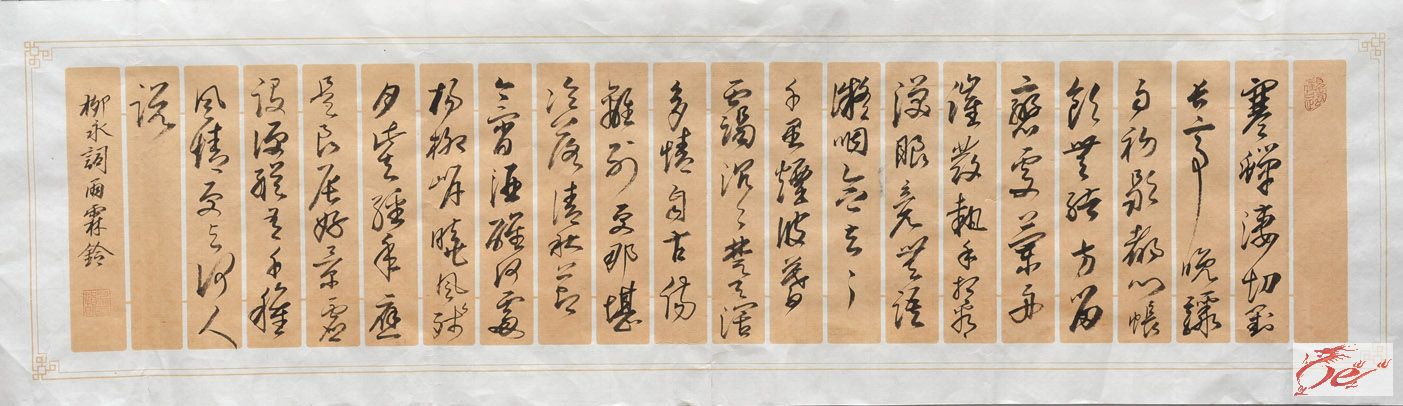 寒蟬淒切對
長亭晚驟
雨初歇都門帳
飲無緒方留
戀處蘭舟
催發執手相看
淚眼竟無語
凝咽念去々
千里煙波暮
靄沉々楚天闊
多情自古傷
離別更那堪
冷落清秋節
今宵酒醒何處
楊柳岸曉風殘
月此去經年應
是良辰好景虛
設便縱有千種
風情更與何人
說
柳永詞雨霖鈴